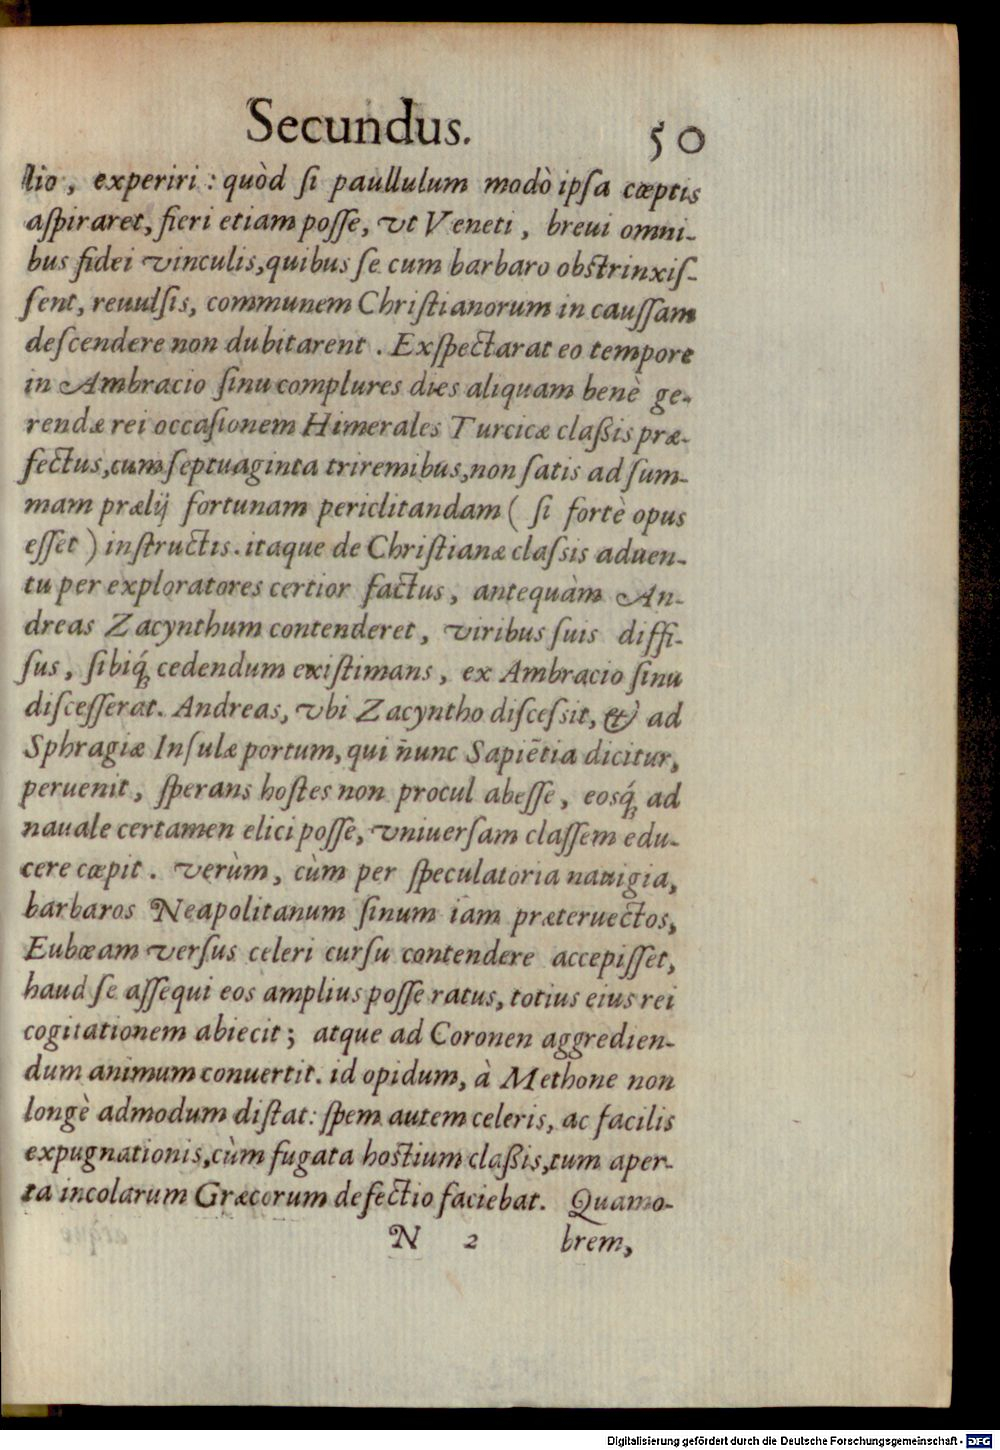 Secundus. 50
lio, experiri: quòd ſi paullulum modò ipſa cœptis
aſpiraret, fieri etiam poſſe, vt Veneti, breui omni-
bus fidei vinculis, quibus ſe cum barbaro obſtrinxiſ-
ſent, reuulſis, communem Chriſtianorum in cauſſam
deſcendere non dubitarent. Exſpectarat eo tempore
in Ambracio ſinu complures dies aliquam benè ge-
rendæ rei occaſionem Himerales Turcicæ claßis præ-
fectus, cum ſeptuaginta triremibus, non ſatis ad ſum-
mam prælij fortunam periclitandam ( ſi fortè opus
eſſet ) inſtructis. itaque de Chriſtianæ claſsis aduen-
tu per exploratores certior factus, antequàm An-
dreas Zacynthum contenderet, viribus ſuis diffi-
ſus, ſibiq́; cedendum exiſtimans, ex Ambracio ſinu
diſceſſerat. Andreas, vbi Zacyntho diſceſsit, & ad
Sphragiæ Inſulæ portum, qui nunc Sapiẽtia dicitur,
peruenit, ſperans hoſtes non procul abeſſe, eosq́; ad
nauale certamen elici poſſe, vniuerſam claſſem edu-
cere cœpit. verùm, cùm per ſpeculatoria nauigia,
barbaros Neapolitanum ſinum iam præteruectos,
Eubœam verſus celeri curſu contendere accepiſſet,
haud ſe aſſequi eos amplius poſſe ratus, totius eius rei
cogitationem abiecit; atque ad Coronen aggredien-
dum animum conuertit. id opidum, à Methone non
longè admodum diſtat: ſpem autem celeris, ac facilis
expugnationis, cùm fugata hoſtium claßis, tum aper-
ta incolarum Græcorum defectio faciebat. Quamo-
N 2 brem,
Digitalisierung gefördert durch die Deutsche Forschungsgemeinschaft - DFG